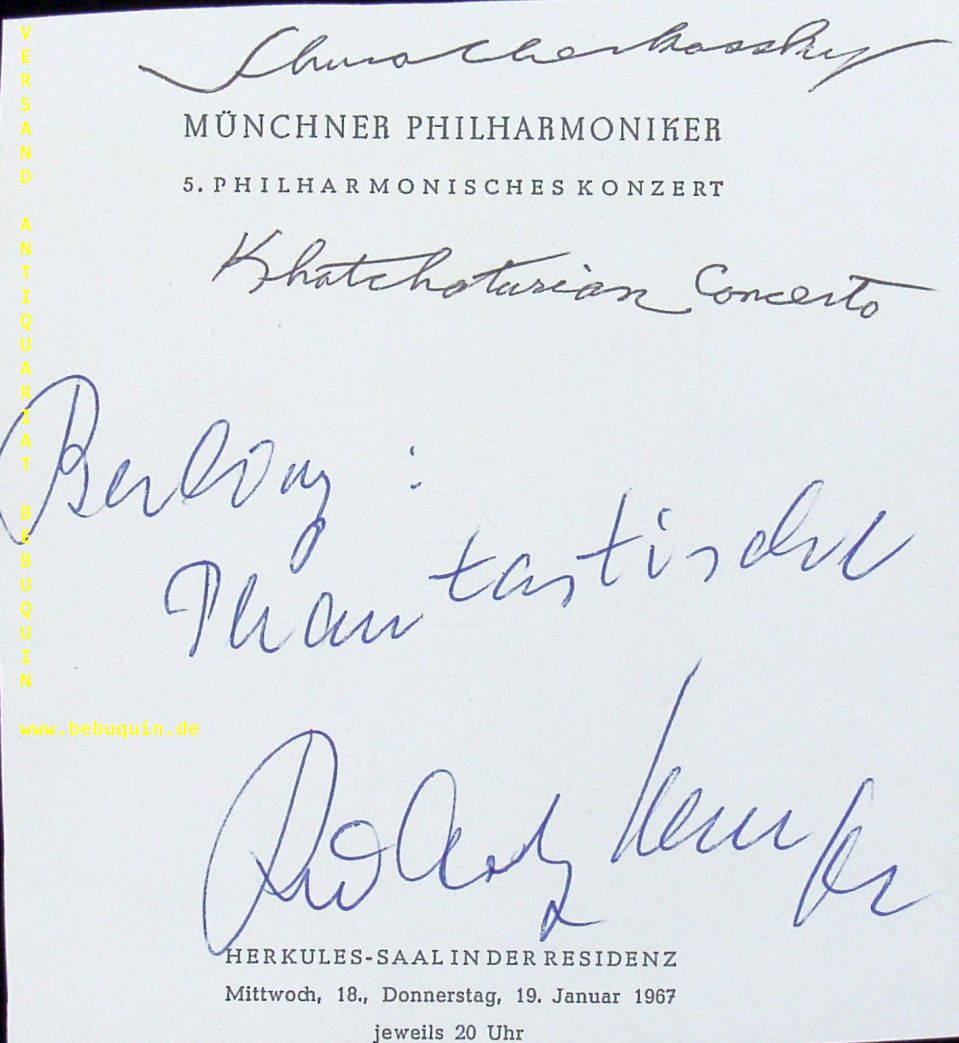 Shura Cherkassky
MÜNCHNER PHILHARMONIKER
5. PHILHARMONISCHES KONZERT
Khatchaturian Concerto
Berlioz :
Phantastische
Rudolf Kempe
HERKULES-SAAL IN DER RESIDENZ
Mittwoch, 18., Donnerstag, 19. Januar 1967
jeweils 20 Uhr
VERSAND ANTIQUARIAT BEBUQUIN
www.bebuquin.de